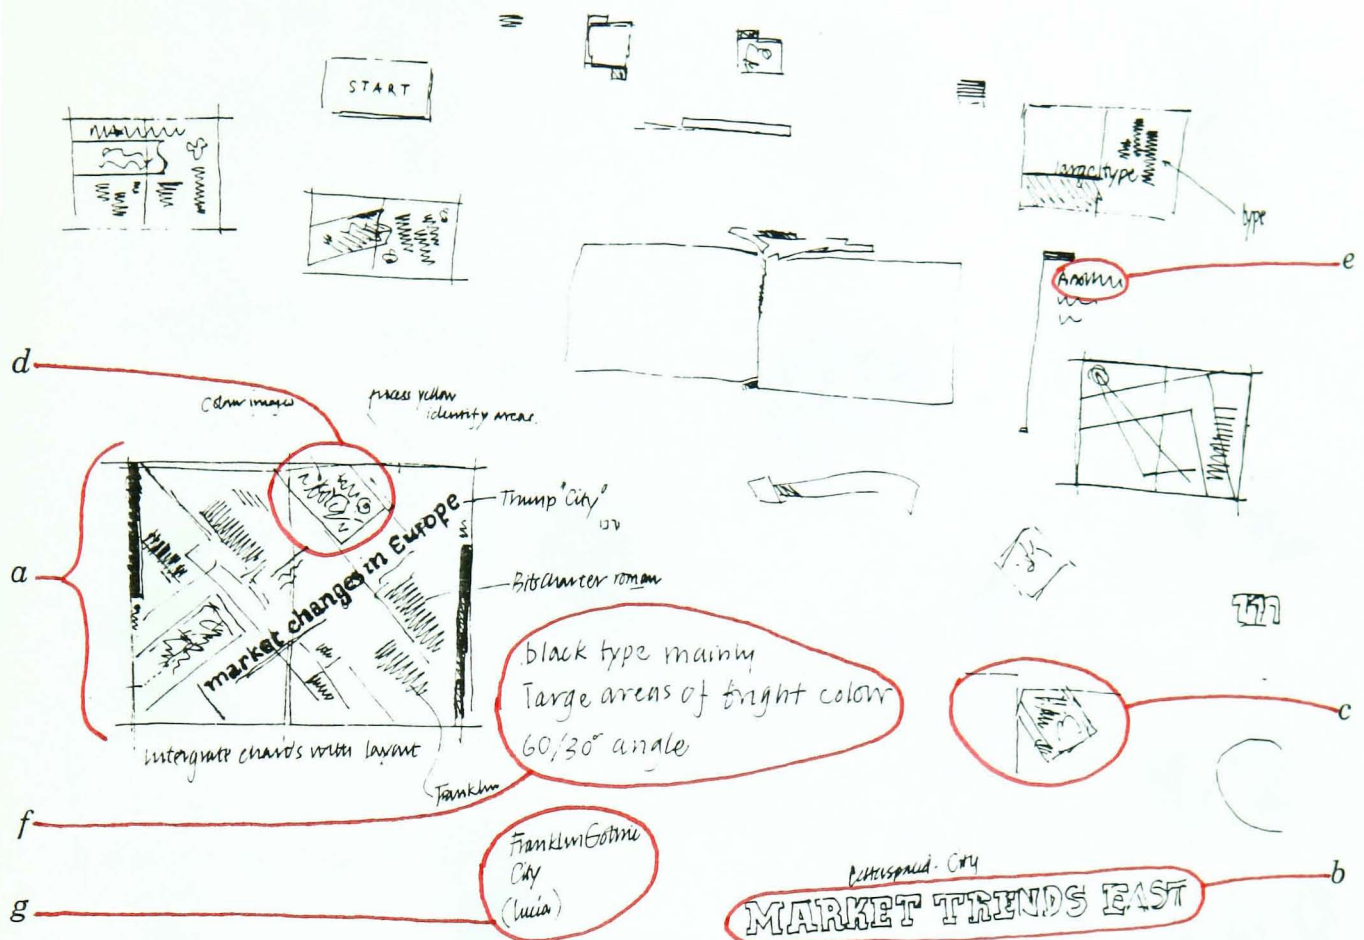 START
large type
type
e
d
Colour images
process yellow
identify areas.
Trump "City"
a
market changes in Europe
Bits Charter roman
black type mainly
large areas of bright colour
60/30° angle
c
intergrate charts with layout
Franklin
f
Franklin Gothic
City
(lucia)
g
Letterspaced. City
MARKET TRENDS EAST
b